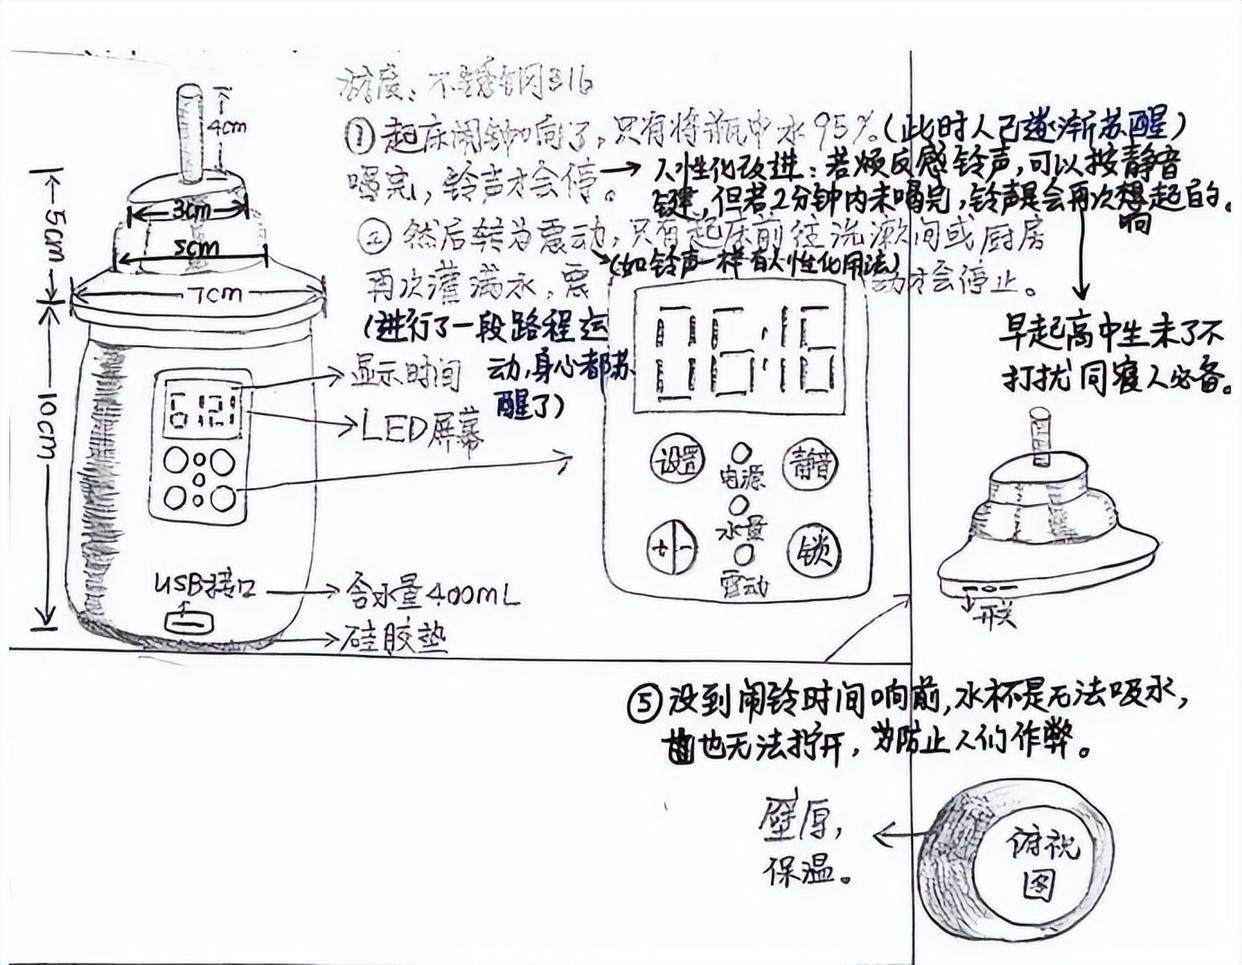 材质：不锈钢316
①起床闹钟响了，只有将瓶中水95%（此时人已逐渐苏醒）
喝完，铃声才会停。
人性化改进：若烦反感铃声，可以按静音
键，但若2分钟内未喝完，铃声是会再次想起的。
响
②然后转为震动，只有起床前往洗漱间或厨房
（如铃声一样有人性化用法）
再次灌满水，震动才会停止。
（进行了一段路程运
动，身心都苏
醒了）
早起高中生未了不
打扰同寝人必备。
4cm
3cm
5cm
5cm
7cm
10cm
显示时间
LED屏幕
USB接口
含水量400mL
硅胶垫
06:16
设置
电源
静音
水量
+ -
锁
震动
开关
⑤没到闹铃时间响前，水杯是无法吸水，
也无法拧开，为防止人们作弊。
壁厚，
保温。
俯视
图